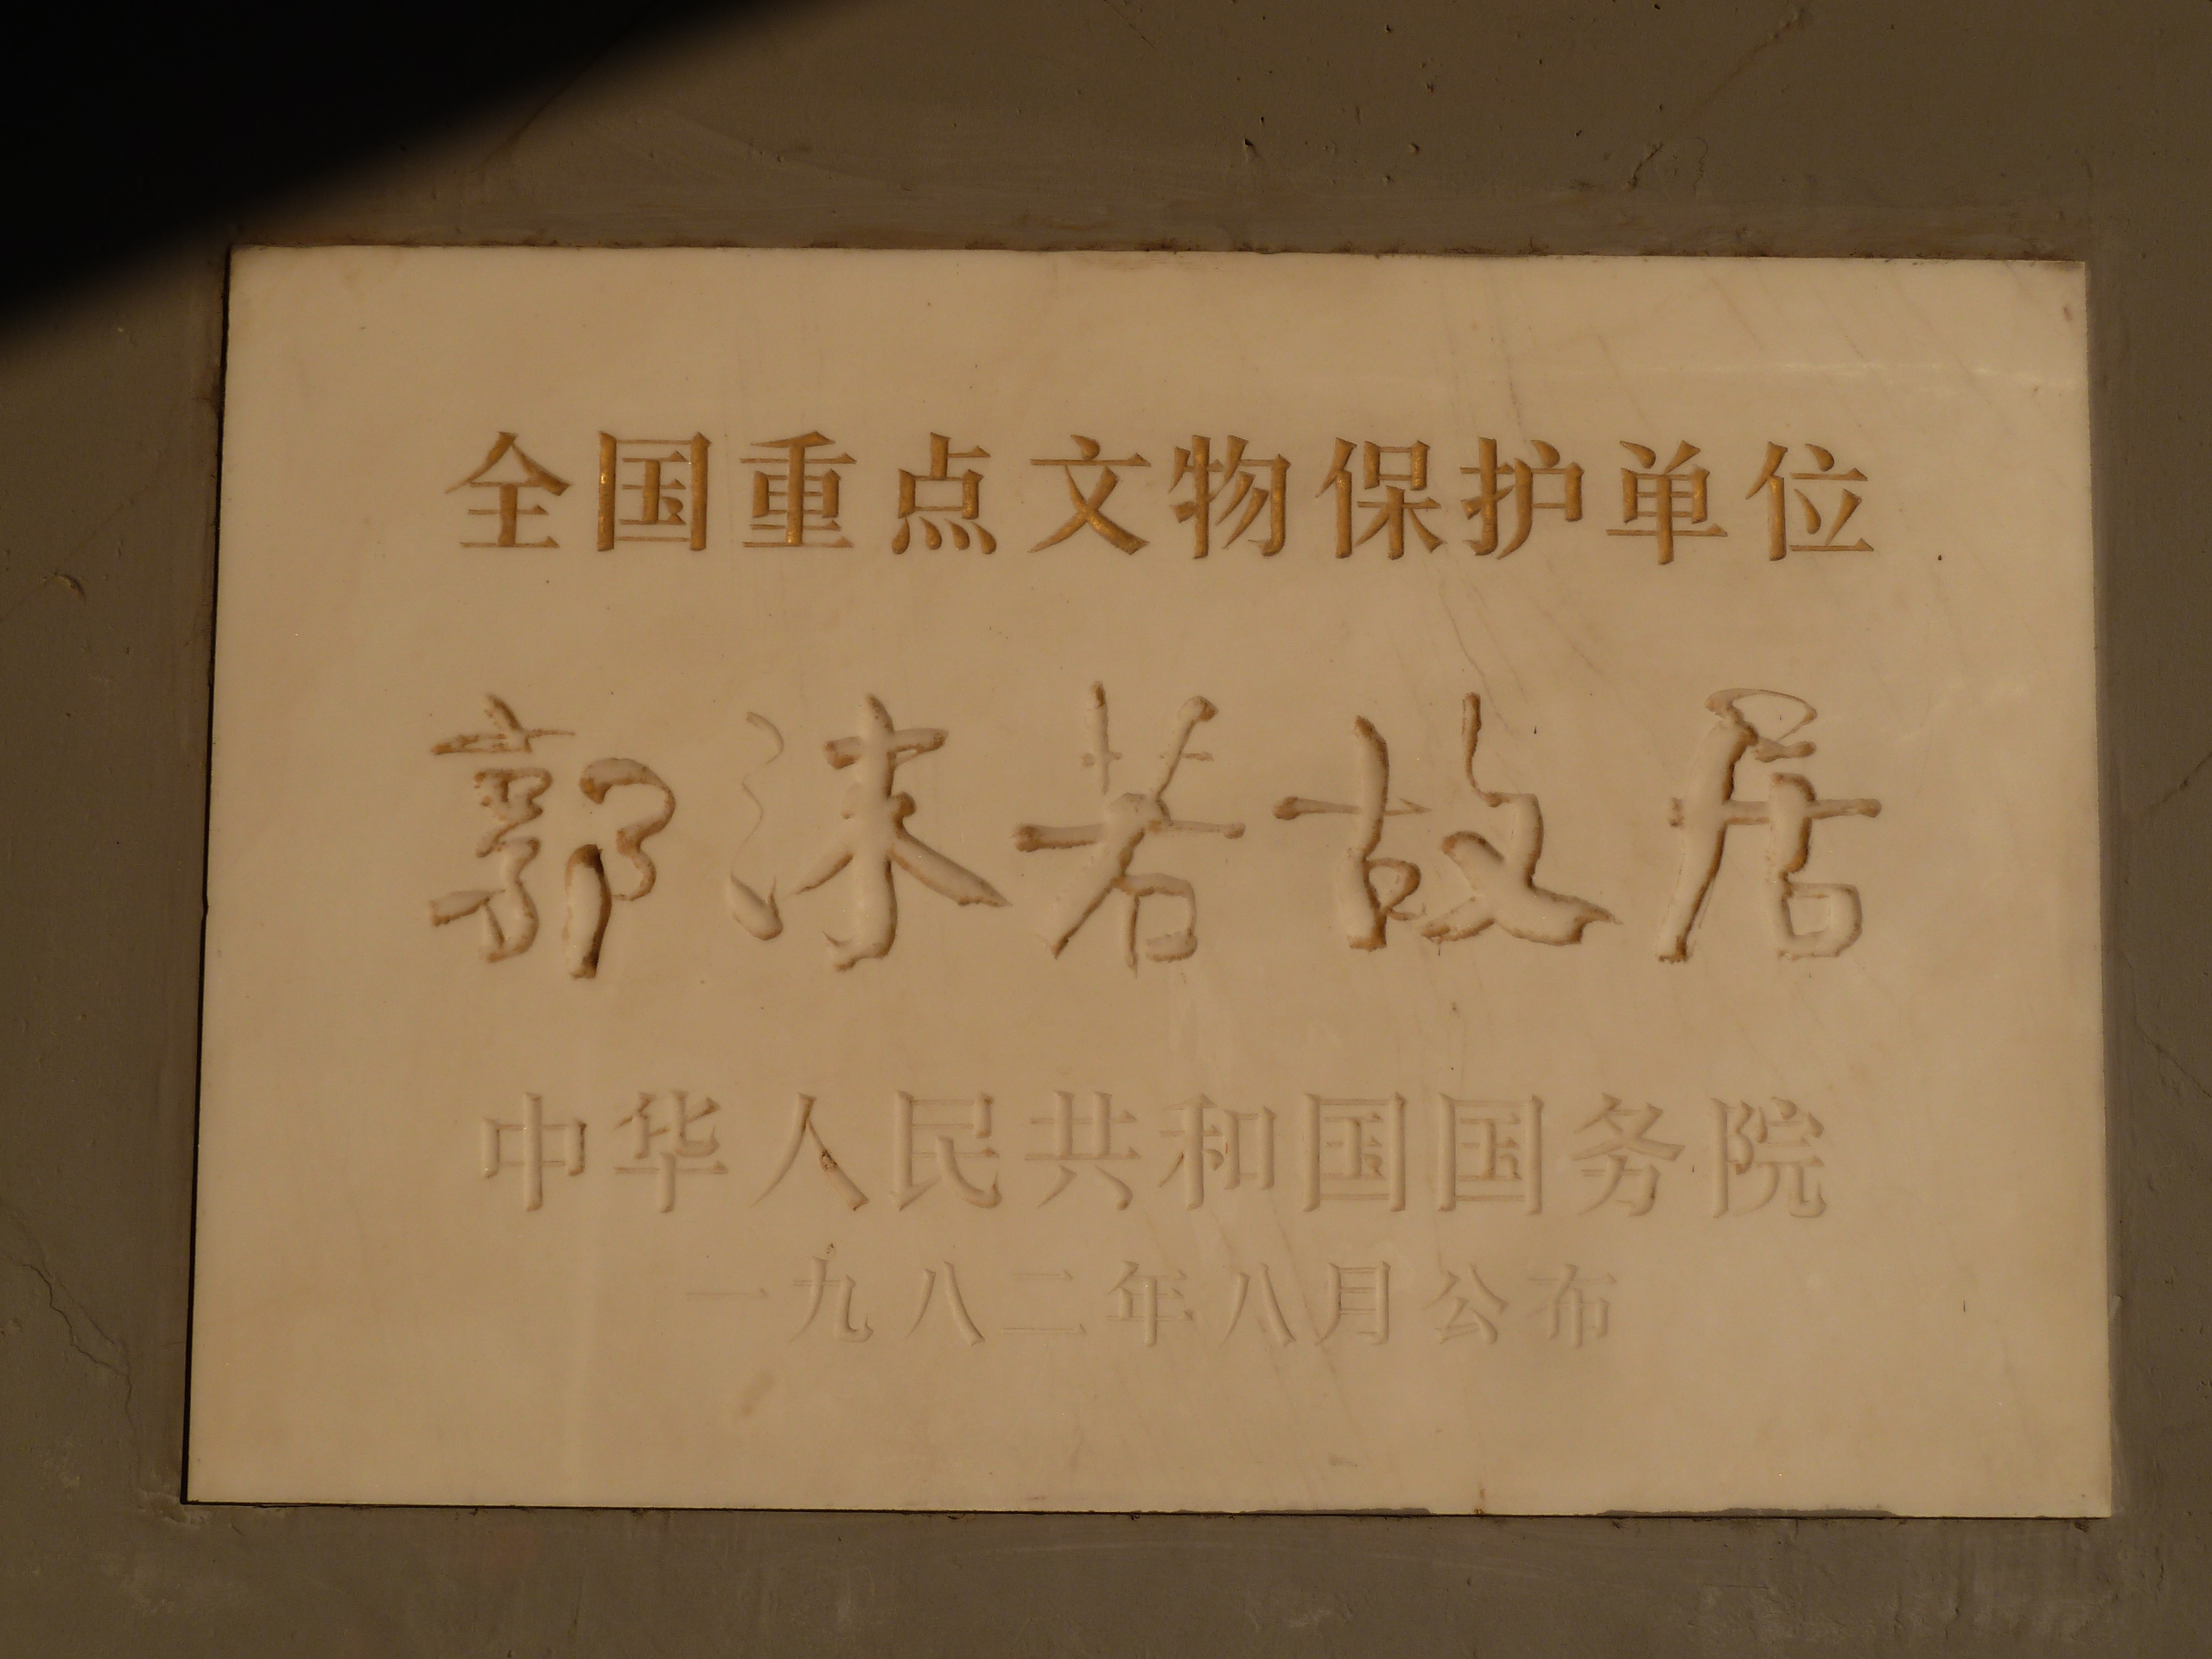 全国重点文物保护单位
郭沫若故居
中华人民共和国国务院
一九八二年八月公布